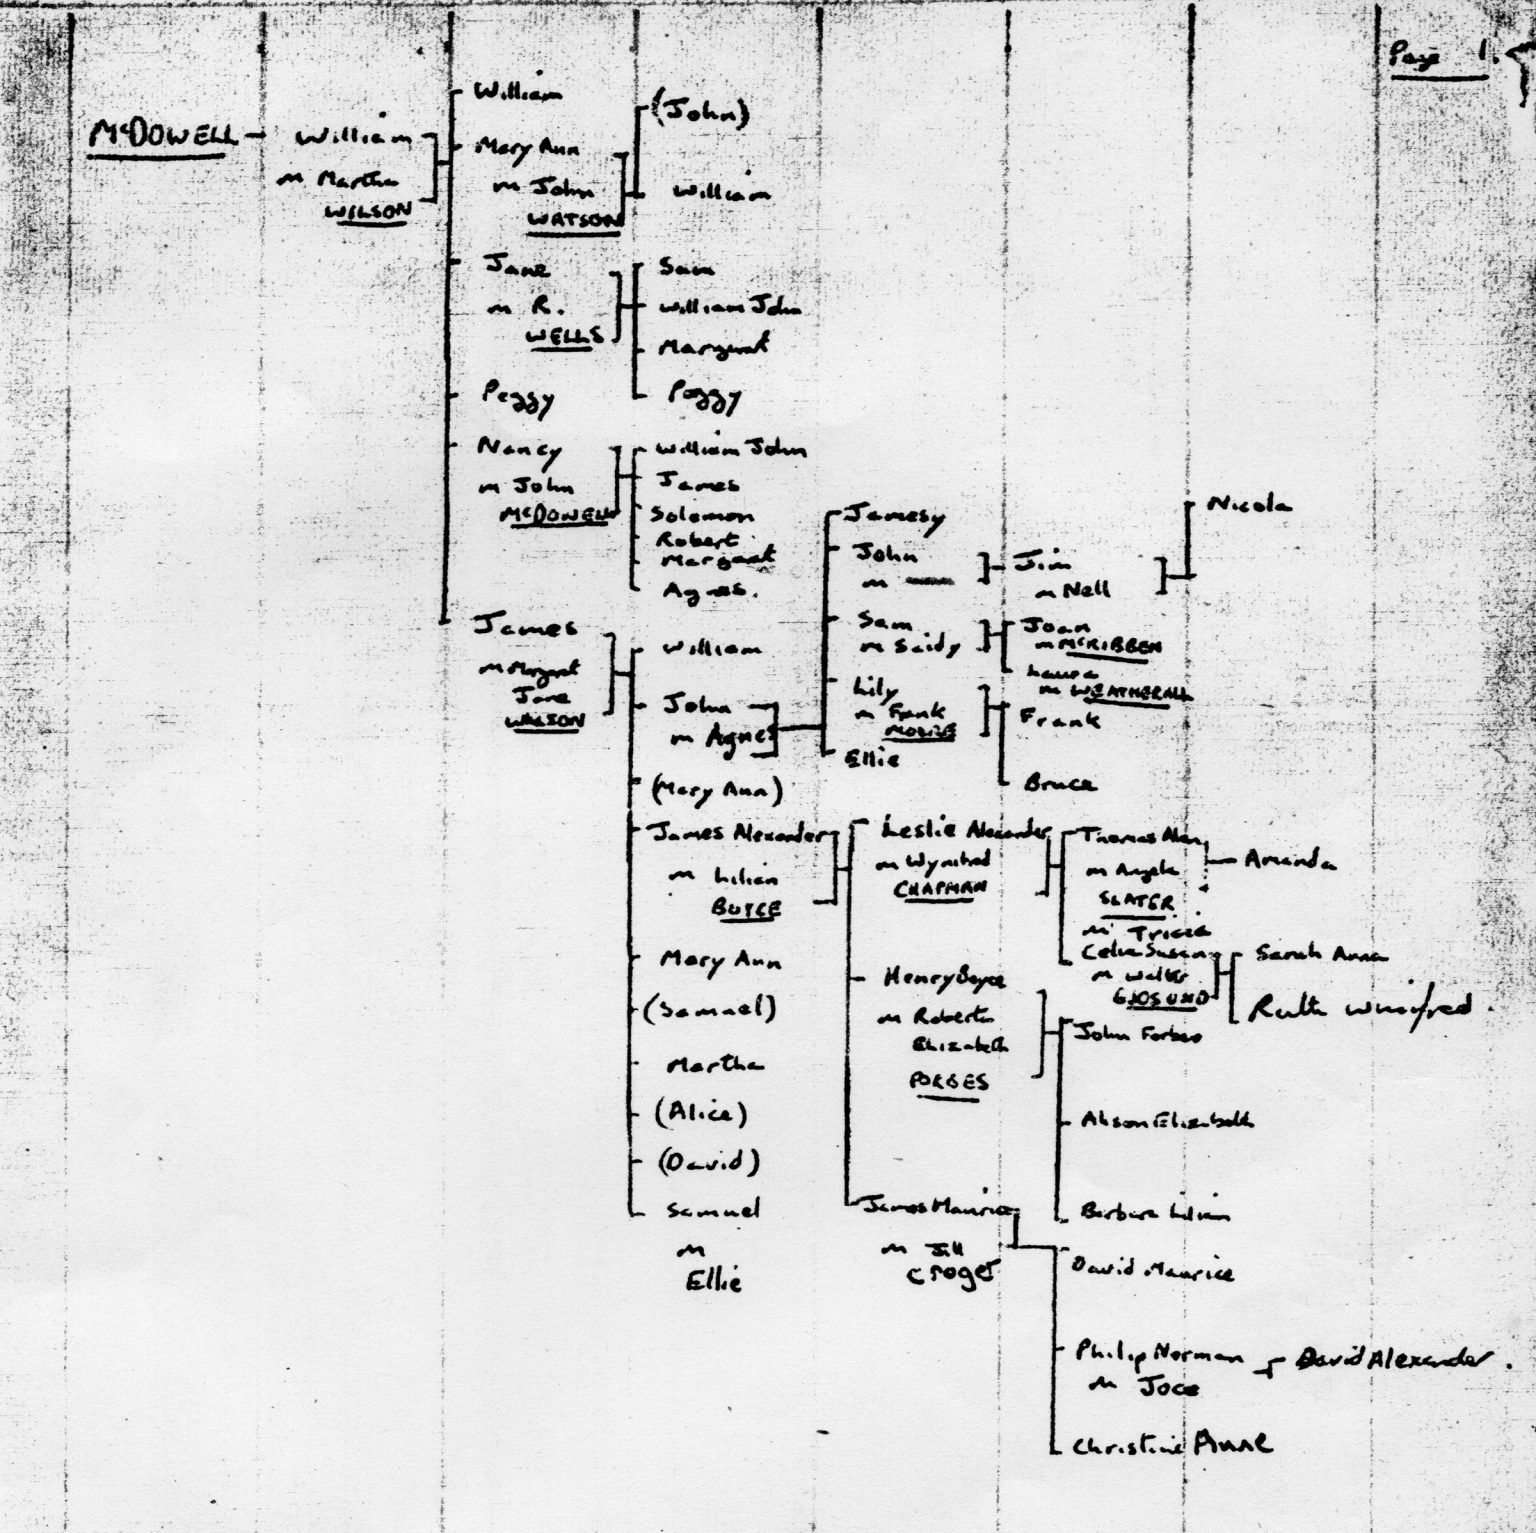 Page 1.
McDOWELL
William
m Martha
WILSON
William
Mary Ann
m John
WATSON
Jane
m R.
WELLS
Peggy
Nancy
m John
McDOWELL
James
m Margaret
Jane
WATSON
(John)
William
Sam
William John
Margaret
Peggy
William John
James
Solomon
Robert
Margaret
Agnes.
William
John
m Agnes
(Mary Ann)
James Alexander
m Lilian
BOYCE
Mary Ann
(Samuel)
Martha
(Alice)
(David)
Samuel
m
Ellie
Jamesy
John
m
Sam
m Saidy
Lily
m Frank
Ellie
Leslie Alexander
m Wynifred
CHAPMAN
Henry Boyce
m Roberta
Elizabeth
FORBES
James Maurice
m Jill
Croger
Jim
m Nell
Joan
m McKIBBEN
Laura
m WEATHERALL
Frank
Bruce
Thomas Alan
m Angela
SLATER
m Tricia
Celia Susan
m Walter
GJOSUND
John Forbes
Alison Elizabeth
Barbara Lilian
David Maurice
Philip Norman
m Joce
Christine Anne
Nicola
Amanda
Sarah Anna
Ruth Winifred.
David Alexander.